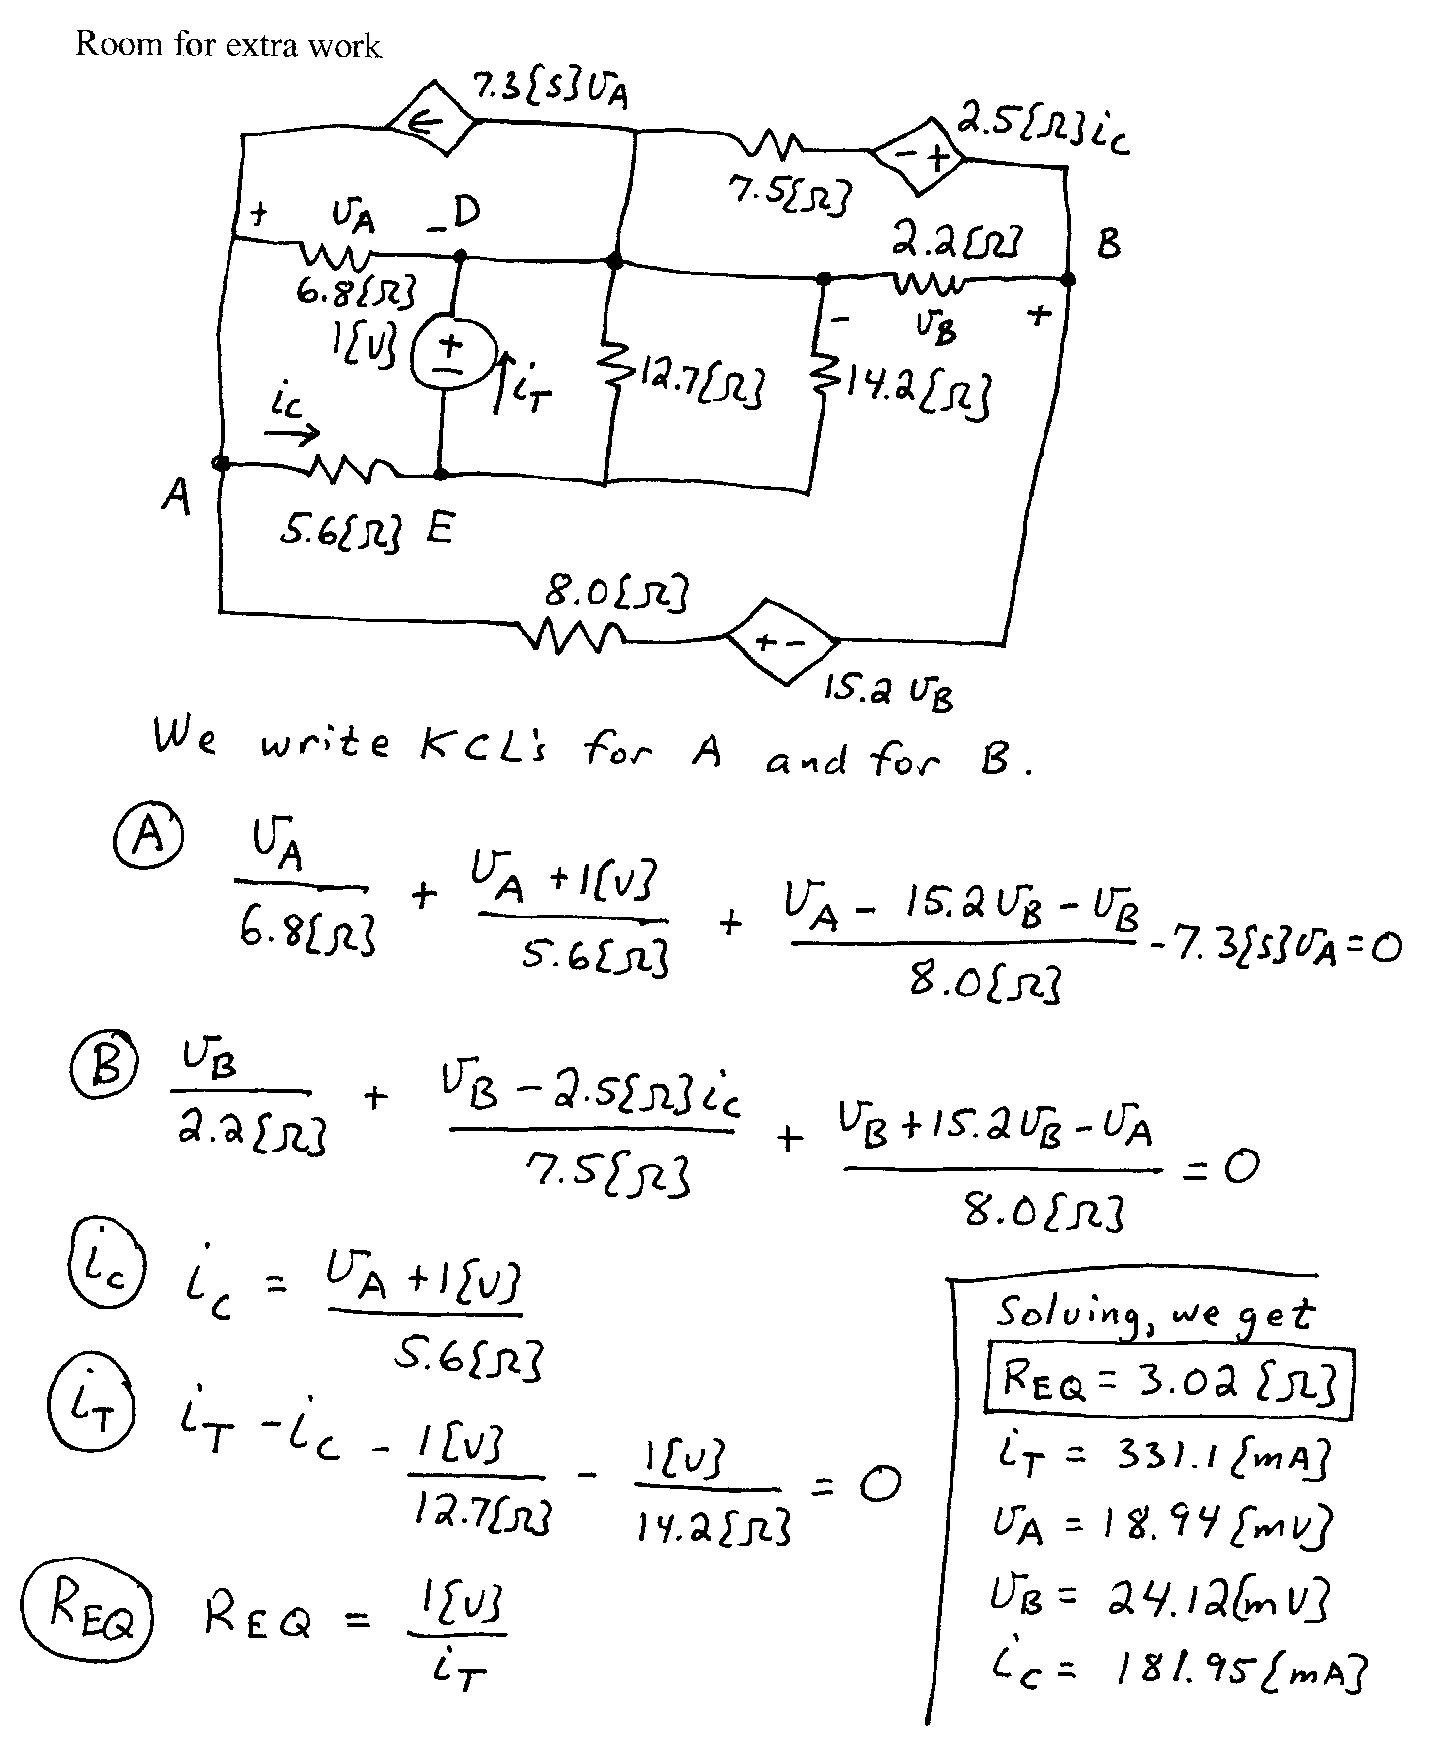 Room for extra work
7.3{S}vA
2.5{Ω}iC
←
- +
7.5{Ω}
+ vA - D
2.2{Ω} B
6.8{Ω}
- vB +
1{V} + -
iT
12.7{Ω}
14.2{Ω}
iC
→
A
5.6{Ω} E
8.0{Ω}
+ -
15.2 vB
We write KCL's for A and for B.
(A) vA/6.8{Ω} + (vA + 1{V})/5.6{Ω} + (vA - 15.2vB - vB)/8.0{Ω} - 7.3{S}vA = 0
(B) vB/2.2{Ω} + (vB - 2.5{Ω}iC)/7.5{Ω} + (vB + 15.2vB - vA)/8.0{Ω} = 0
(iC) iC = (vA + 1{V})/5.6{Ω}
(iT) iT - iC - 1{V}/12.7{Ω} - 1{V}/14.2{Ω} = 0
(REQ) REQ = 1{V}/iT
Solving, we get
REQ = 3.02 {Ω}
iT = 331.1 {mA}
vA = 18.94 {mV}
vB = 24.12{mV}
iC = 181.95 {mA}